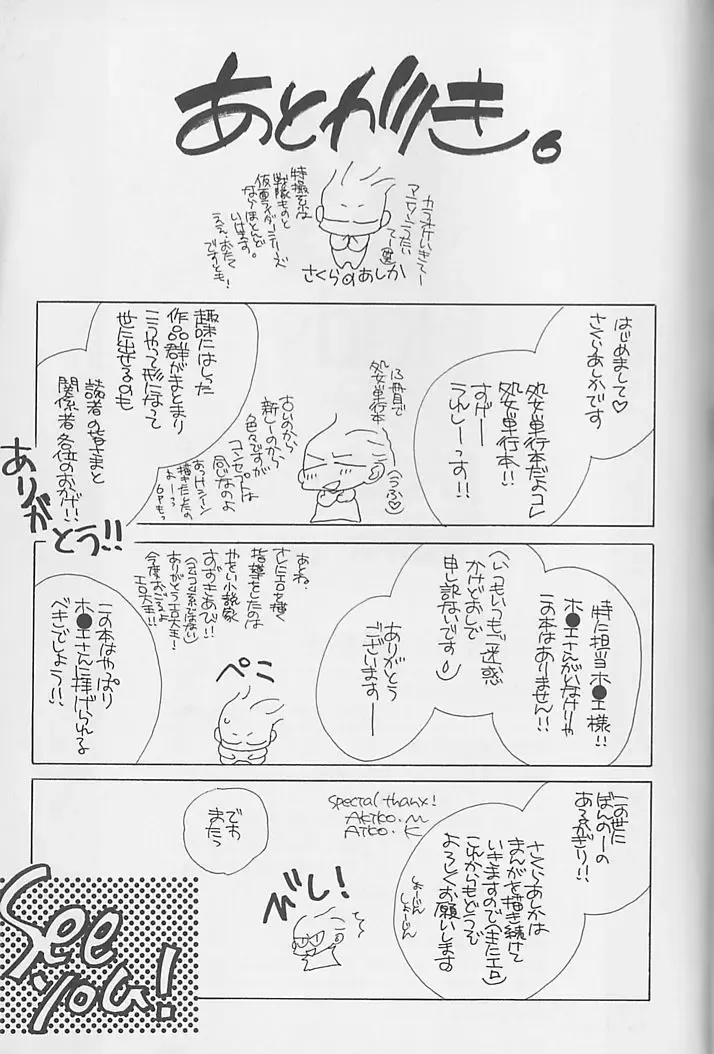 あとがき。
カラオケいきてー
アニソンうたいてー
特撮系は
戦隊ものと
仮面ライダーシリーズ
ならほとんど
いけます。
ええ、おたく
ですとも!
さくらのあしか
はじめまして♡
さくらあしかです
処女単行本だよコレ
処女単行本!!
すげーー
うれしーっす!!
13冊目で
処女単行本
(うふ♡)
古いのから
新しーのから
色々ですが
コンセプトは
同じなのよ
趣味にはしった
作品群がまとまり
こうやって形になって
世に出せるのも
読者の皆さまと
関係者各位のおかげ!!
ありがとう!!
特に担当ホ●エ様!!
ホ●エさんがいなけりゃ
この本はありません!!
(いつもいつもご迷惑
かけどおしで
申し訳ないです)
ありがとう
ございますーー
あとね、
さくらにエロを描く
指導をしたのは
やおい小説家
すずきあび!!
ありがとうエロ大王!
今度おごるよ
エロ大王!!
ペこ
この本はやっぱり
ホ●エさんに捧げられる
べきでしょう!!
この世に
ぼんのーの
あるかぎり!!
さくらあしかは
まんがを描き続けて
いきますので(またエロ)
これからもどうぞ
よろしくお願いします
しょーじん
しょーじん
Special thanx!
AKIKO.M
AIKO.K
びし!
でわ
またっ
See
you!